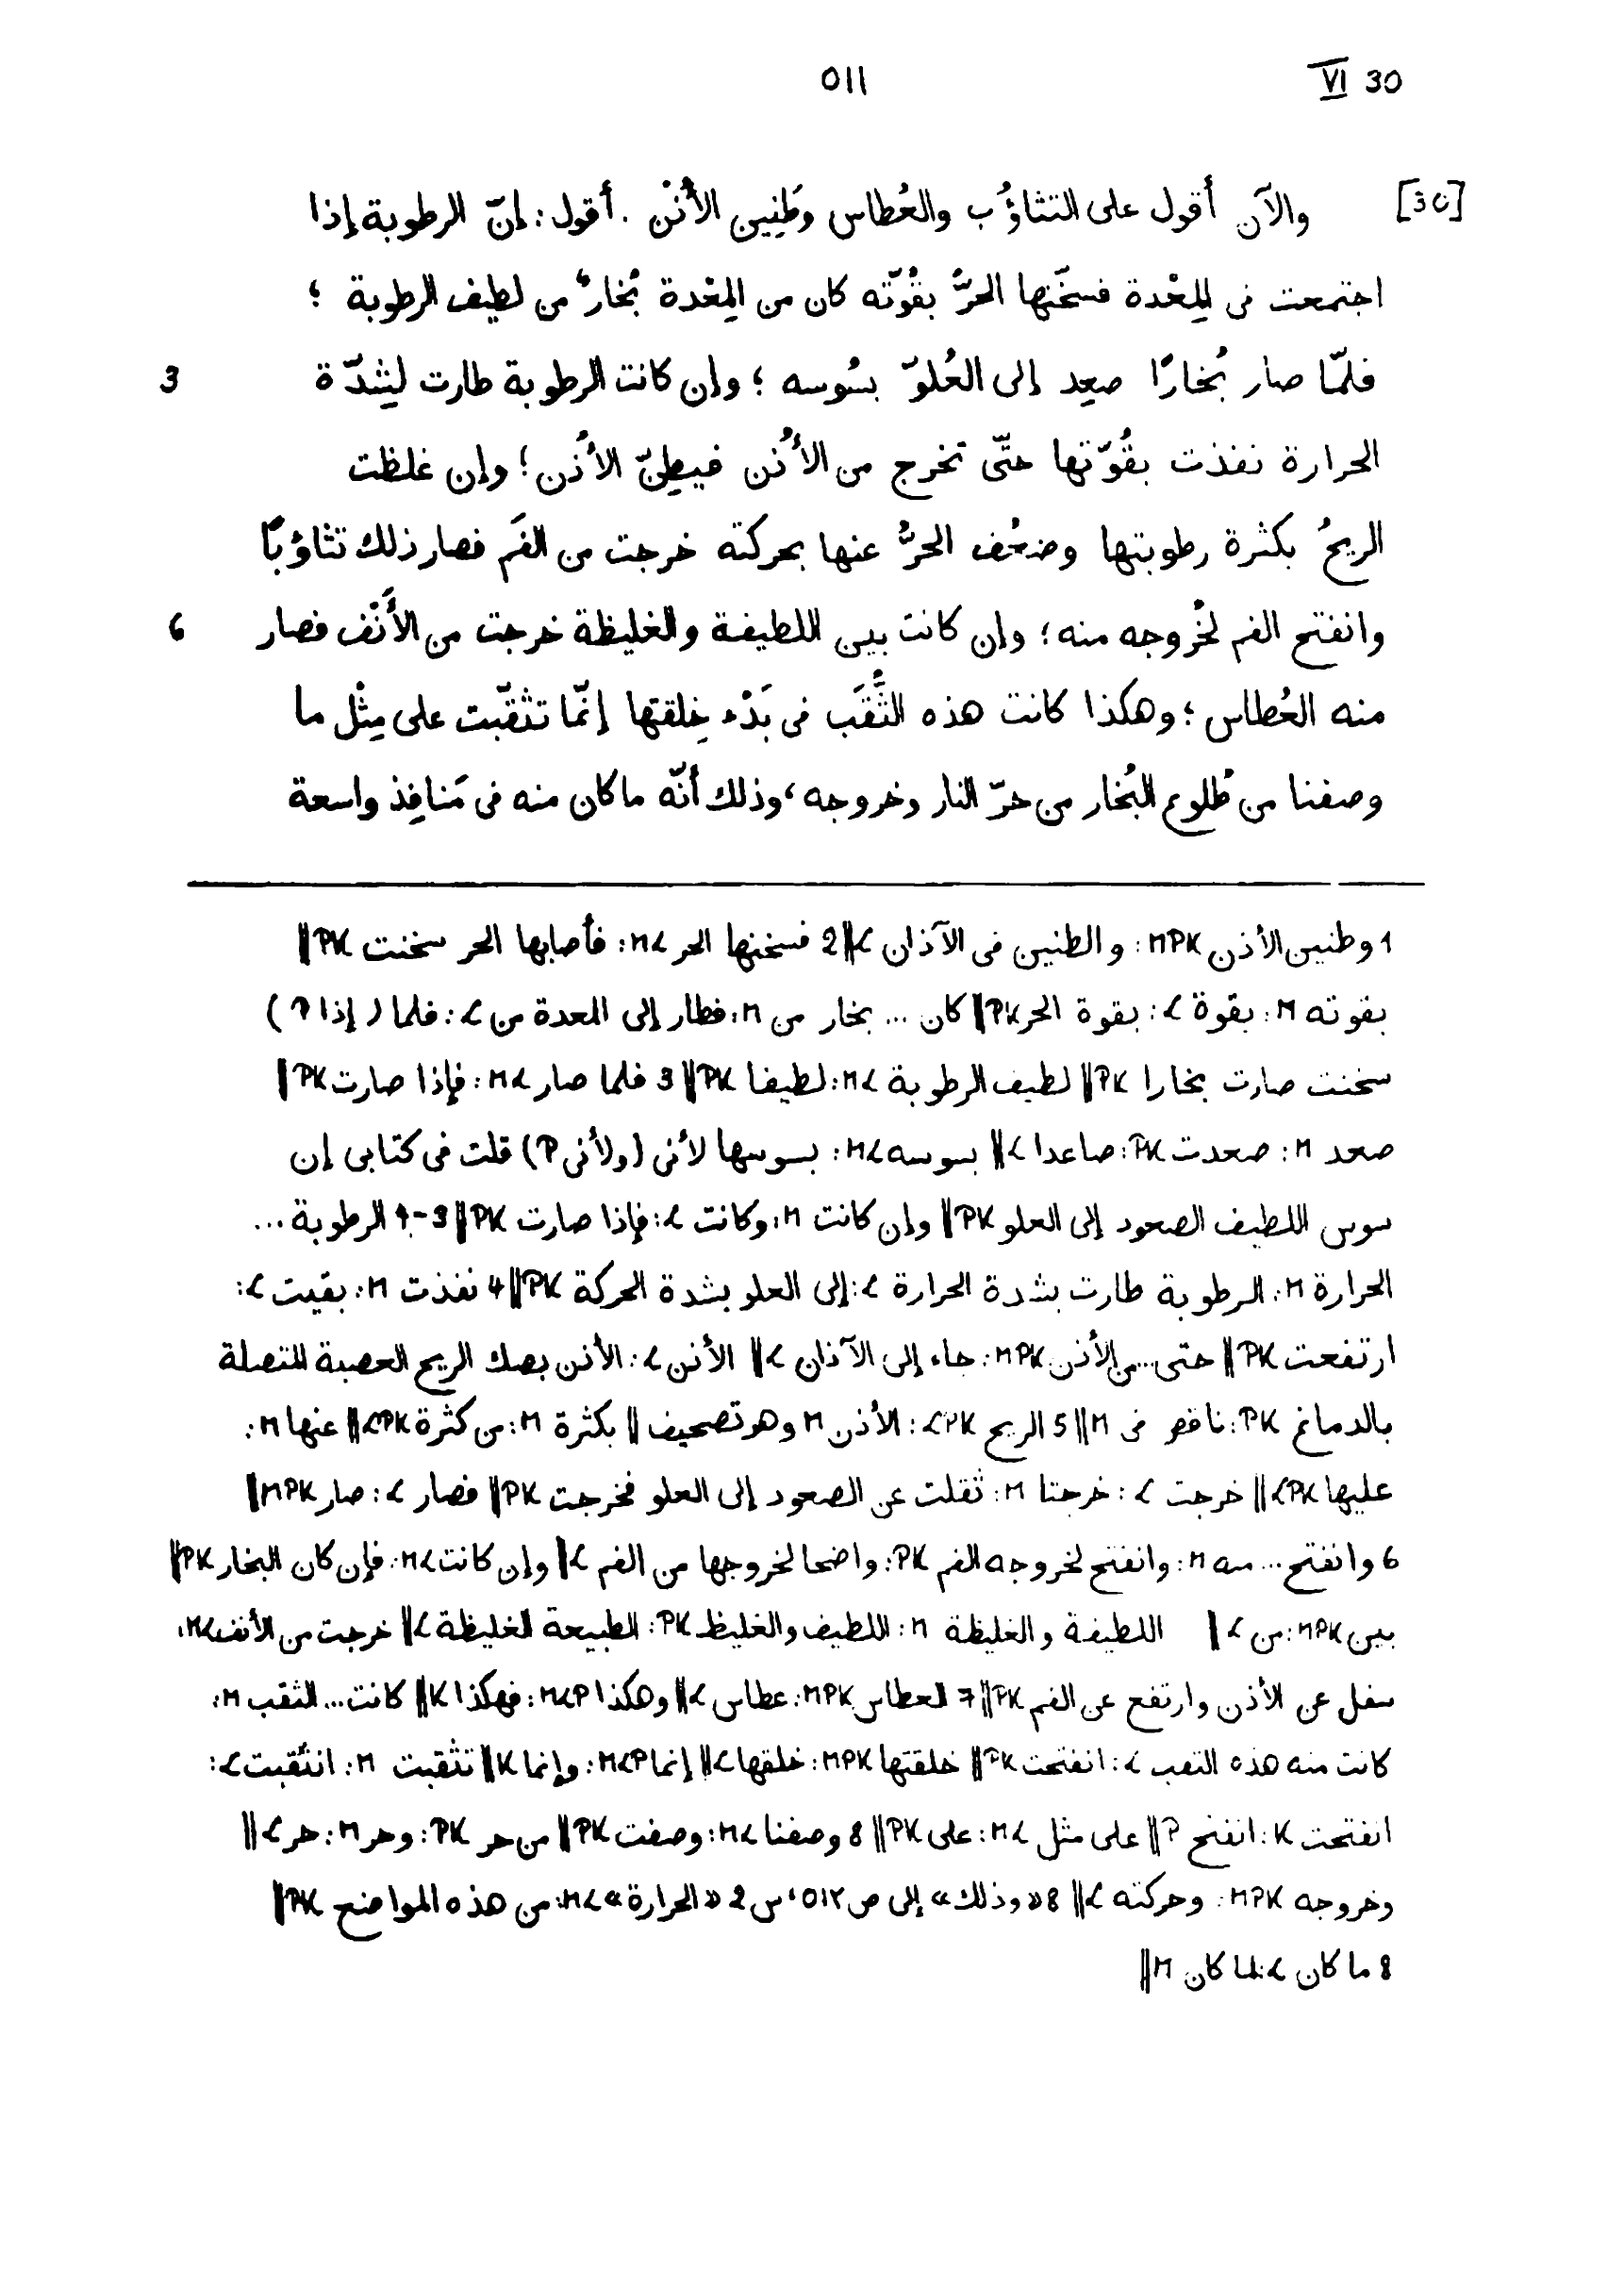 ٥١١ VI 30
[30] والآن أقول على التثاؤُب والعُطاس وطَنِين الأُذْن. أقول: إنّ الرطوبة إذا
اجتمعت فى المِعْدة فسخّنها الحرُّ بقُوّته كان من المِعْدة بُخارٌ من لطيف الرطوبة؛
فلمّا صار بُخارًا صعِد إلى العُلوّ بسُوسه؛ وإن كانت الرطوبة طارت لِشدّة 3
الحرارة نفذت بقُوّتها حتّى تخرج من الأُذن فيطِنّ الأُذن؛ وإن غلظت
الريحُ بكثرة رطوبتها وضعُف الحرُّ عنها بحركته خرجت من الفَم فصار ذلك تثاؤبًا
وانفتح الفم لخُروجه منه؛ وإن كانت بين اللطيفة والغليظة خرجت من الأَنْف فصار 6
منه العُطاس؛ وهكذا كانت هذه الثُّقَب فى بَدْء خِلقتها إنّما تثقّبت على مِثْل ما
وصفنا من طُلوع البُخار من حرّ النار وخروجه، وذلك أنّه ما كان منه فى مَنافِذ واسعة
1 وطنين الأذن MPK: والطنين فى الآذان L‖ 2 فسخنها الحر ML: فأصابها الحر سخنت PK‖
بقوته M: بقوة L: بقوة الحر PK‖ كان ... بخار من M: فطار إلى المعدة من L: فلما (إذا P)
سخنت صارت بخارا PK‖ لطيف الرطوبة ML: لطيفا PK‖ 3 فلما صار ML: فإذا صارت PK‖
صعد M: صعدت PK: صاعدا L‖ بسوسه ML: بسوسها لأنى (ولأنى P) قلت فى كتابى إن
سوس اللطيف الصعود إلى العلو PK‖ وإن كانت M: وكانت L: فإذا صارت PK‖ 3-4 الرطوبة ...
الحرارة M: الرطوبة طارت بشدة الحرارة L: إلى العلو بشدة الحركة PK‖ 4 نفذت M: بقيت L:
ارتفعت PK‖ حتى ... من الأذن MPK: جاء إلى الآذان L‖ الأذن L: الأذن بصك الريح العصبة المتصلة
بالدماغ PK: ناقص فى M‖ 5 الريح LPK: الأذن M وهو تصحيف‖ بكثرة M: من كثرة LPK‖ عنها M:
عليها LPK‖ خرجت L: خرجتا M: ثقلت عن الصعود إلى العلو فخرجت PK‖ فصار L: صار MPK‖
6 وانفتح ... منه M: وانفتح لخروجه الفم PK: واضحا لخروجها من الفم L‖ وإن كانت ML: فإن كان البخار PK‖
بين MPK: من L‖ اللطيفة والغليظة M: اللطيف والغليظ PK: الطبيعة الغليظة L‖ خرجت من الأنف ML:
سفل عن الأذن وارتفع عن الفم PK‖ 7 العطاس MPK: عطاس L‖ وهكذا MLP: فهكذا K‖ كانت ... الثقب M:
كانت منه هذه التعب L: انفتحت PK‖ خلقتها MPK: خلقها L‖ إنما MLP: وإنما K‖ تثقبت M: انثقبت L:
انفتحت K: انفتح P‖ على مثل ML: على PK‖ 8 وصفنا ML: وصفت PK‖ من حر PK: وحر M: حر L‖
وخروجه MPK: وحركته L‖ 8 «وذلك» إلى ص ٥١٢، س 2 «الحرارة» ML: من هذه المواضع PK‖
8 ما كان L: لما كان M‖